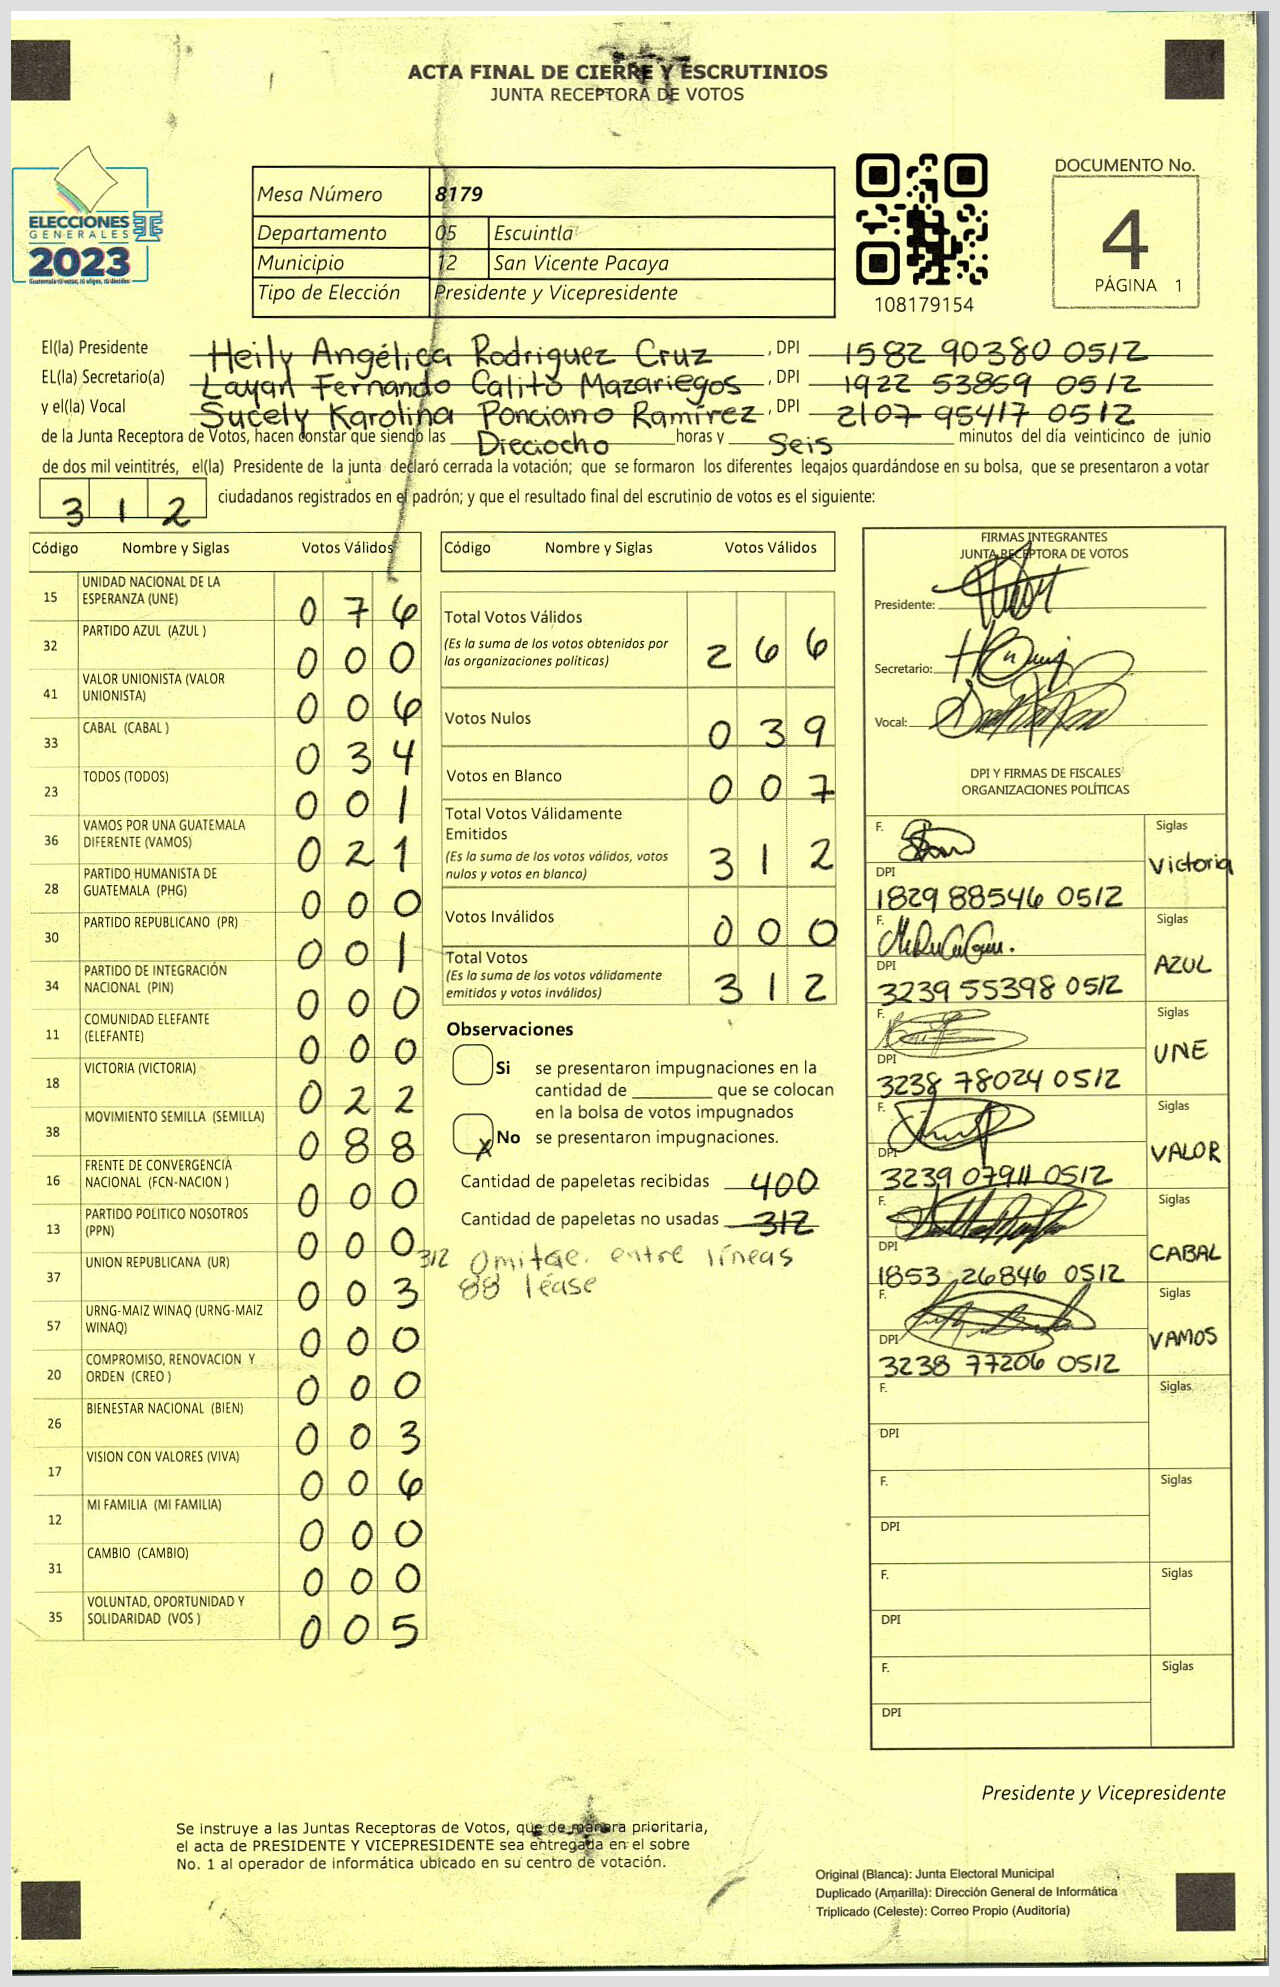 ACTA FINAL DE CIERRE Y ESCRUTINIOS
JUNTA RECEPTORA DE VOTOS
ELECCIONES
GENERALES
2023
Guatemala tú votas, tú eliges, tú decides
Mesa Número 8179
Departamento 05 Escuintla
Municipio 12 San Vicente Pacaya
Tipo de Elección Presidente y Vicepresidente
108179154
DOCUMENTO No.
4
PÁGINA 1
El(la) Presidente Heily Angélica Rodriguez Cruz , DPI 1582 90380 0512
EL(la) Secretario(a) Layan Fernando Calito Mazariegos , DPI 1922 53869 0512
y el(la) Vocal Sucely Karolina Ponciano Ramírez , DPI 2107 95417 0512
de la Junta Receptora de Votos, hacen constar que siendo las Dieciocho horas y Seis minutos del día veinticinco de junio
de dos mil veintitrés, el(la) Presidente de la junta declaró cerrada la votación; que se formaron los diferentes legajos quardándose en su bolsa, que se presentaron a votar
312 ciudadanos registrados en el padrón; y que el resultado final del escrutinio de votos es el siguiente:
Código Nombre y Siglas Votos Válidos
15 UNIDAD NACIONAL DE LA ESPERANZA (UNE) 076
32 PARTIDO AZUL (AZUL ) 000
41 VALOR UNIONISTA (VALOR UNIONISTA) 006
33 CABAL (CABAL ) 034
23 TODOS (TODOS) 001
36 VAMOS POR UNA GUATEMALA DIFERENTE (VAMOS) 021
28 PARTIDO HUMANISTA DE GUATEMALA (PHG) 000
30 PARTIDO REPUBLICANO (PR) 001
34 PARTIDO DE INTEGRACIÓN NACIONAL (PIN) 000
11 COMUNIDAD ELEFANTE (ELEFANTE) 000
18 VICTORIA (VICTORIA) 022
38 MOVIMIENTO SEMILLA (SEMILLA) 088
16 FRENTE DE CONVERGENCIA NACIONAL (FCN-NACION ) 000
13 PARTIDO POLITICO NOSOTROS (PPN) 000
37 UNION REPUBLICANA (UR) 003
57 URNG-MAIZ WINAQ (URNG-MAIZ WINAQ) 000
20 COMPROMISO, RENOVACION Y ORDEN (CREO ) 000
26 BIENESTAR NACIONAL (BIEN) 003
17 VISION CON VALORES (VIVA) 006
12 MI FAMILIA (MI FAMILIA) 000
31 CAMBIO (CAMBIO) 000
35 VOLUNTAD, OPORTUNIDAD Y SOLIDARIDAD (VOS ) 005
Código Nombre y Siglas Votos Válidos
Total Votos Válidos
(Es la suma de los votos obtenidos por
las organizaciones políticas) 266
Votos Nulos 039
Votos en Blanco 007
Total Votos Válidamente
Emitidos
(Es la suma de los votos válidos, votos
nulos y votos en blanco) 312
Votos Inválidos 000
Total Votos
(Es la suma de los votos válidamente
emitidos y votos inválidos) 312
Observaciones
Si se presentaron impugnaciones en la
cantidad de ________ que se colocan
en la bolsa de votos impugnados
X No se presentaron impugnaciones.
Cantidad de papeletas recibidas 400
Cantidad de papeletas no usadas 312
312 Omitae. entre líneas
88 léase
FIRMAS INTEGRANTES
JUNTA RECEPTORA DE VOTOS
Presidente:
Secretario:
Vocal:
DPI Y FIRMAS DE FISCALES
ORGANIZACIONES POLÍTICAS
F. Siglas
Victoria
DPI
1829 88546 0512
F. Siglas
AZUL
DPI
3239 55398 0512
F. Siglas
UNE
DPI
3238 78024 0512
F. Siglas
VALOR
DPI
3239 07911 0512
F. Siglas
CABAL
DPI
1853 26846 0512
F. Siglas
VAMOS
DPI
3238 77206 0512
F. Siglas
DPI
F. Siglas
DPI
F. Siglas
DPI
F. Siglas
DPI
Presidente y Vicepresidente
Se instruye a las Juntas Receptoras de Votos, que de manera prioritaria,
el acta de PRESIDENTE Y VICEPRESIDENTE sea entregada en el sobre
No. 1 al operador de informática ubicado en su centro de votación.
Original (Blanca): Junta Electoral Municipal
Duplicado (Amarilla): Dirección General de Informática
Triplicado (Celeste): Correo Propio (Auditoría)